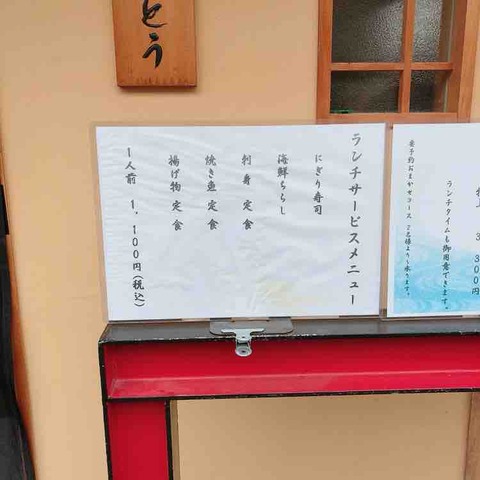 とう
ランチサービスメニュー
にぎり寿司
海鮮ちらし
刺身定食
焼き魚定食
揚げ物定食
1人前 1,100円(税込)
3,300円
ランチタイムも御用意できます。
要予約おまかせコース 2名様より承ります。